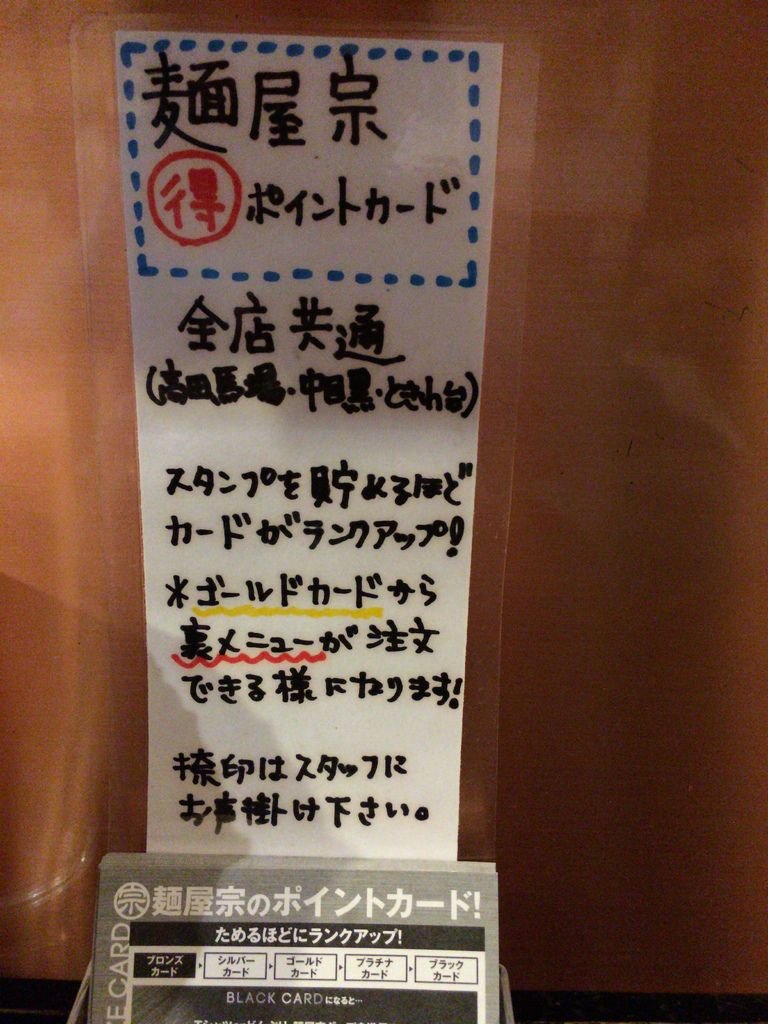 麺屋宗
得 ポイントカード
全店共通
(高田馬場・中目黒・ときわ台)
スタンプを貯めるほど
カードがランクアップ!
*ゴールドカードから
裏メニューが注文
できる様になります!
捺印はスタッフに
お声掛け下さい。
宗 麺屋宗のポイントカード!
ためるほどにランクアップ!
ブロンズカード シルバーカード ゴールドカード プラチナカード ブラックカード
BLACK CARDになると…
CARD